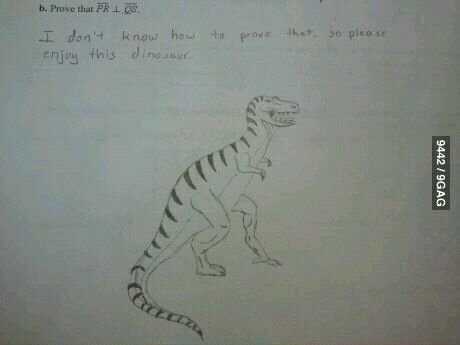 b. Prove that P̅R̅ ⊥ Q̅S̅.
I don't know how to prove that, so please
enjoy this dinosaur.
9442 / 9GAG